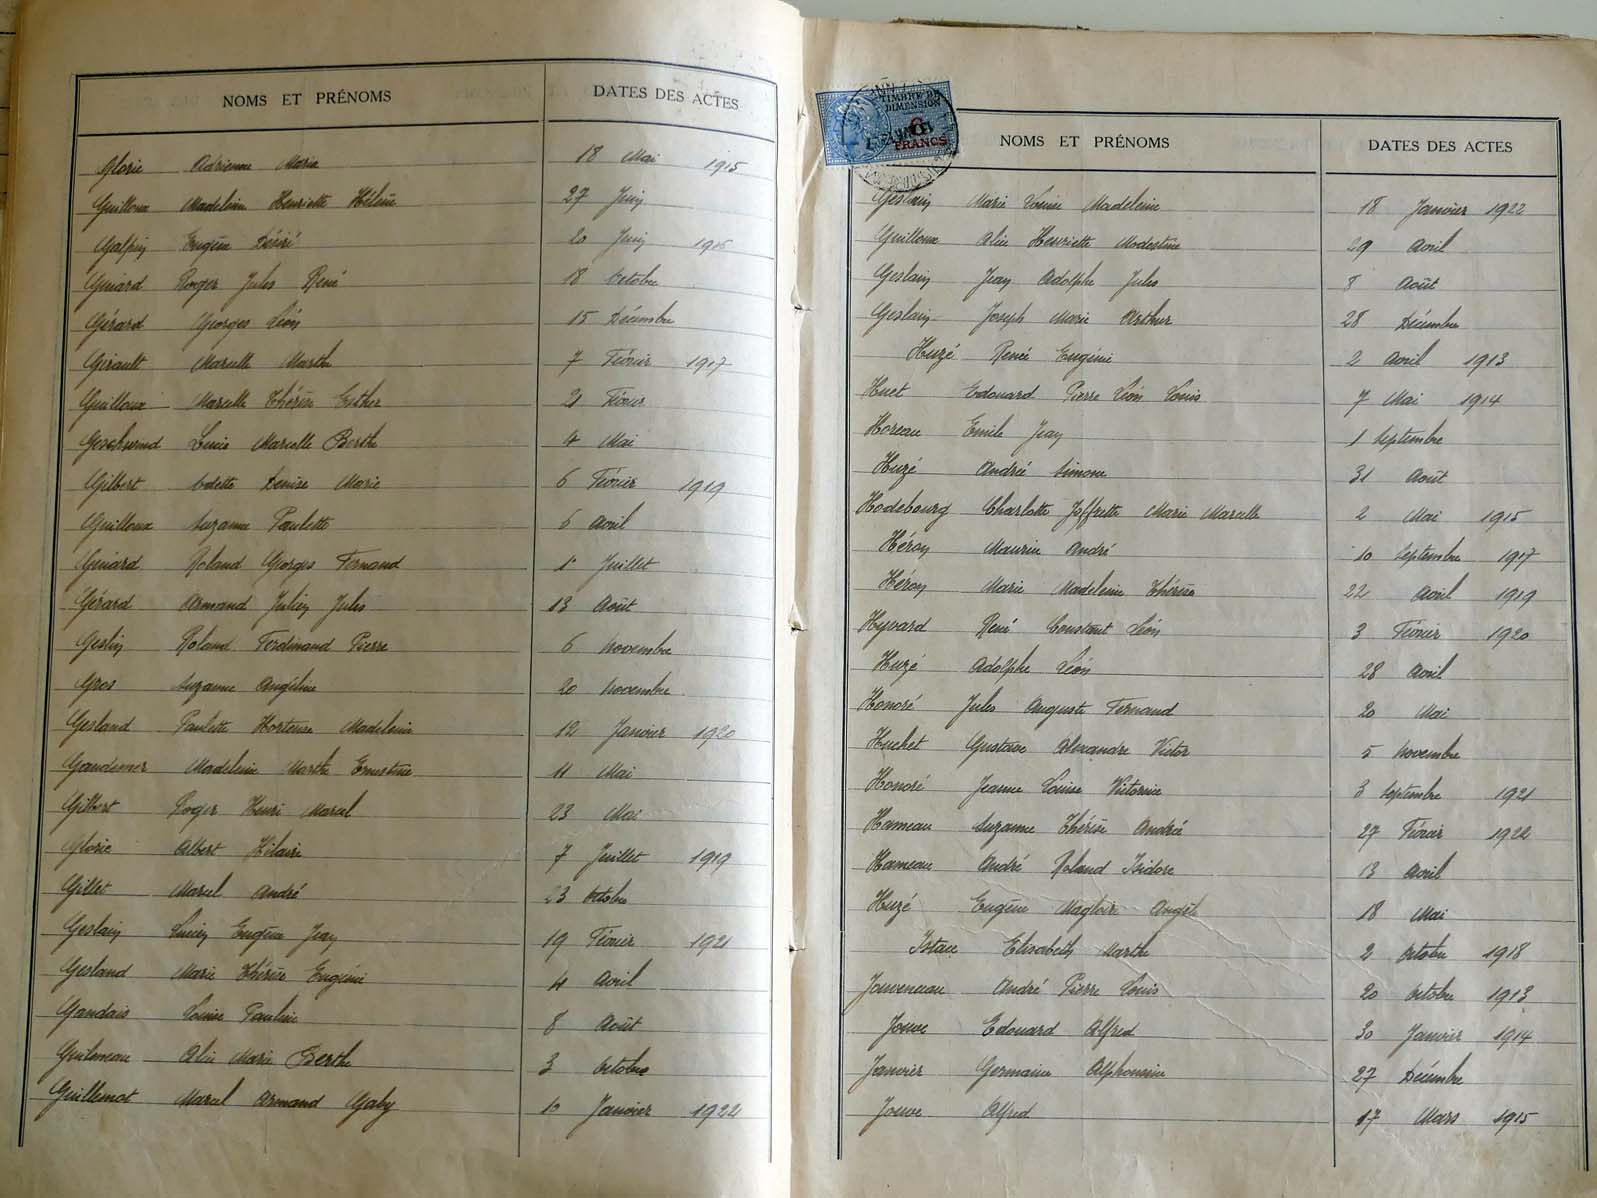 NOMS ET PRÉNOMS DATES DES ACTES
Glorie Adrienne Maria 18 Mai 1915
Guilloux Madeleine Henriette Hélène 27 Juin
Galpin Eugène Désiré 20 Juin 1915
Guiard Roger Jules René 18 Octobre
Gérard Georges Léon 15 Décembre
Girault Marcelle Marthe 7 Février 1917
Guilloux Marcelle Thérèse Esther 21 Février
Geschwind Lucie Marcelle Berthe 4 Mai
Gilbert Odette Denise Marie 6 Février 1919
Guilloux Suzanne Paulette 6 Avril
Guiard Roland Georges Fernand 1er Juillet
Gérard Armand Julien Jules 13 Août
Geslin Roland Ferdinand Pierre 6 Novembre
Gros Suzanne Angéline 20 Novembre
Gesland Paulette Hortense Madeleine 12 Janvier 1920
Gaudemer Madeleine Marthe Ernestine 11 Mai
Gilbert Roger Henri Marcel 23 Mai
Glorie Albert Hilaire 7 Juillet 1919
Gillet Marcel André 23 Octobre
Geslain Lucien Eugène Jean 19 Février 1921
Gesland Marie Thérèse Eugénie 4 Avril
Gandais Louise Pauline 8 Août
Guilmeau Alice Marie Berthe 3 Octobre
Guillemot Marcel Armand Gaby 10 Janvier 1922
TIMBRE DE
DIMENSION
6
FRANCS
NOMS ET PRÉNOMS DATES DES ACTES
Geslain Marie Louise Madeleine 18 Janvier 1922
Guilloux Alice Henriette Modestine 29 Avril
Geslain Jean Adolphe Jules 8 Août
Geslain Joseph Marie Arthur 28 Décembre
Huzé René Eugénie 2 Avril 1913
Huet Edouard Pierre Léon Louis 7 Mai 1914
Horeau Emile Jean 1 Septembre
Huzé Andrée Simone 31 Août
Hodebourg Charlotte Joffrette Marie Marcelle 2 Mai 1915
Héron Maurice André 10 Septembre 1917
Héron Marie Madeleine Thérèse 22 Avril 1919
Hyvard René Constant Léon 3 Février 1920
Huzé Adolphe Léon 28 Avril
Honoré Jules Auguste Fernand 20 Mai
Huchet Gustave Alexandre Victor 5 Novembre
Honoré Jeanne Louise Victorine 3 Septembre 1921
Hameau Suzanne Thérèse Andrée 27 Février 1922
Hameau André Roland Isidore 13 Avril
Huzé Eugène Magloir Angèle 18 Mai
Istace Elisabeth Marthe 2 Octobre 1918
Jouveneau André Pierre Louis 20 Octobre 1913
Jouve Edouard Alfred 30 Janvier 1914
Janvier Germaine Alphonsine 27 Décembre
Jouve Alfred 17 Mars 1915